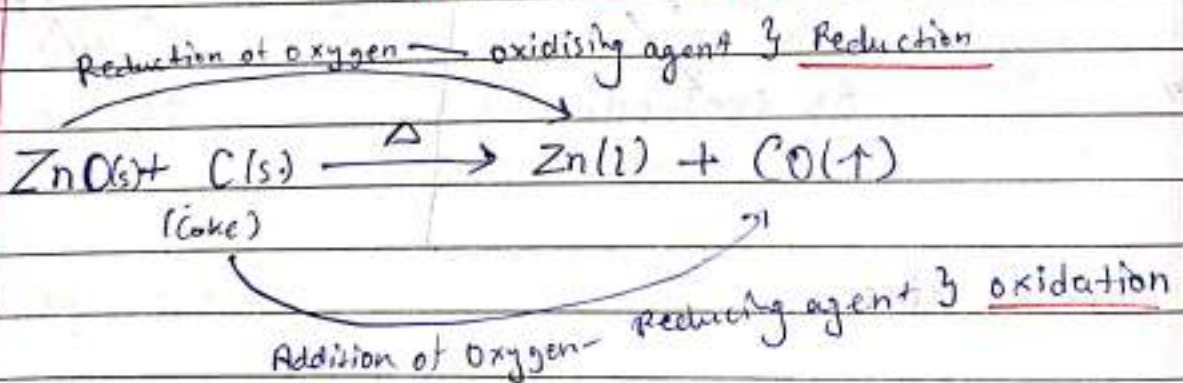 Reduction of oxygen — oxidising agent } Reduction
Δ
ZnO(s)+ C(s) → Zn(l) + CO(↑)
(Coke)
Addition of Oxygen- Reducing agent } oxidation